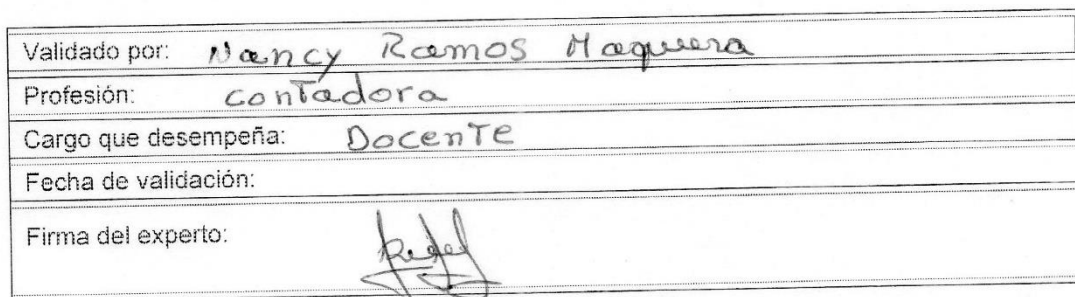 Validado por: Nancy Ramos Maquera
Profesión: Contadora
Cargo que desempeña: Docente
Fecha de validación:
Firma del experto: